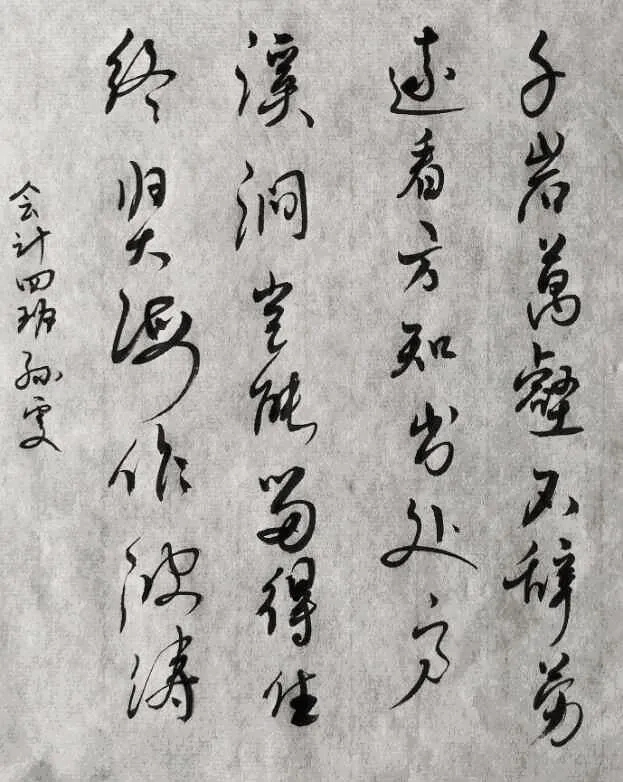 千岩萬壑不辞劳
遠看方知出处高
溪涧豈能留得住
终归大海作波涛
会计四班孙雯